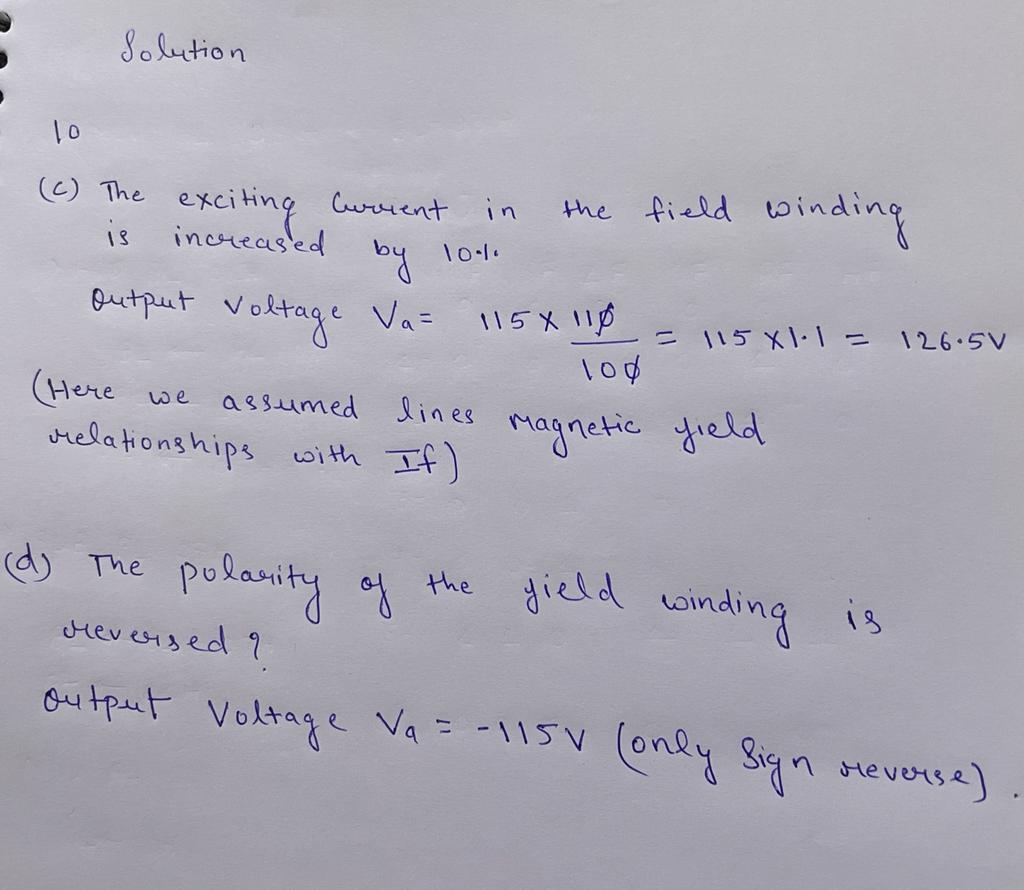 Solution
10
(c) The exciting Current in the field winding
is increased by 10%
Output Voltage Va = 115 x 110/100 = 115 x 1.1 = 126.5V
(Here we assumed lines magnetic yield
relationships with If)
(d) The polarity of the yield winding is
reversed ?
Output Voltage Va = -115V (only Sign reverse).